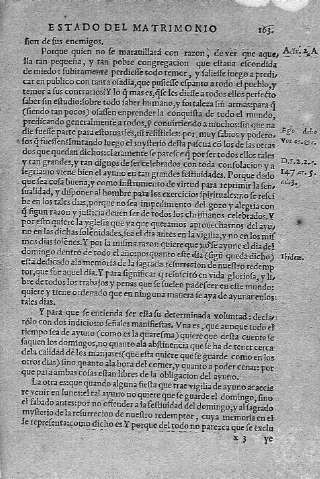 ESTADO DEL MATRIMONIO 163.
sion de sus enemigos.
Porque quien no se marauillará con razon, de ver que aque
lla tan pequeña, y tan pobre congregacion que estaua escondida
de miedo: subitamente perdiesse todo temor, y saliesse luego a predi
car en publico con tanta osadia, que pusiesse espanto a todo el pueblo, y
temor a sus contrarios? Y lo q̃ mas es, q̃ se les diesse a todos ellos perfecto
saber sin estudio: sobre todo saber humano, y fortaleza sin armas para q̃
(siendo tan pocos) osassen emprender la conquista de todo el mundo,
predicando generalmente a todos, y conuirtiendo a muchos: sin que na
die fuesse parte para estoruarles, ni resistirles: por muy sabios y podero
sos q̃ fuessen
dos que quedan dichos: claramente se parece q̃ por ser todos ellos tales
y tan grandes, y tan dignos de ser celebrados con toda consolacion y a
legria: no viene bien el ayuno en tan grandes festiuidades. Porque dado
que sea cosa buena, y como instrumento de virtud para reprimir la sen
sualidad, y disponer al hombre para los exercicios spirituales: no se reſci
be en los tales dias, porque no sea impedimento del gozo y alegria con
q̃ segun razon y justicia deuen ser de todos los christianos celebrados. Y
por esto quiere la yglesia que ya que queramos aprouecharnos del ayu
no en las dichas solenidades: sea el dia antes en la vigilia, y no en los mis
mos dias solenes. Y por la misma razon quiere que no se ayune el dia del
domingo dentro de todo el año: porquanto este dia (segun queda dicho)
esta dedicado a la memoria de la sagrada resurrecion de nuestro redemp
tor, que fue aquel dia. Y para significar q̃ resuscitó en vida gloriosa, y li
bre de todos los trabajos y penas que se suelen padescer en este mundo:
quiere y tiene ordenado que en ninguna manera se aya de ayunar en los
tales dias.
Y para que se entienda ser esta su determinada voluntad: decla
rólo con dos indicios o señales manifiestas. Vna es, que aunque todo el
tiempo sea de ayuno (como es la quaresma) quiere que desta cuenta se
saquen los domingos, no quanto a la abstinencia que se ha de tener cerca
de la calidad de los manjares (que esta quiere que se guarde como en los
otros dias) sino quanto a la hora del comer, y quanto a poder cenar: por
que para ambas cosas estan libres de la obligacion del ayuno.
La otra es que quando alguna fiesta que trae vigilia de ayuno acaece
re venir en lunes: el tal ayuno no quiere que se guarde el domingo, sino
el sabado antes: por no offender a la festiuidad del domingo, y al sagrado
mysterio de la resurrecion de nuestro redemptor, cuya memoria en el
se representa: como dicho es. Y porque del todo no parezca que se exclu
x 3 ye